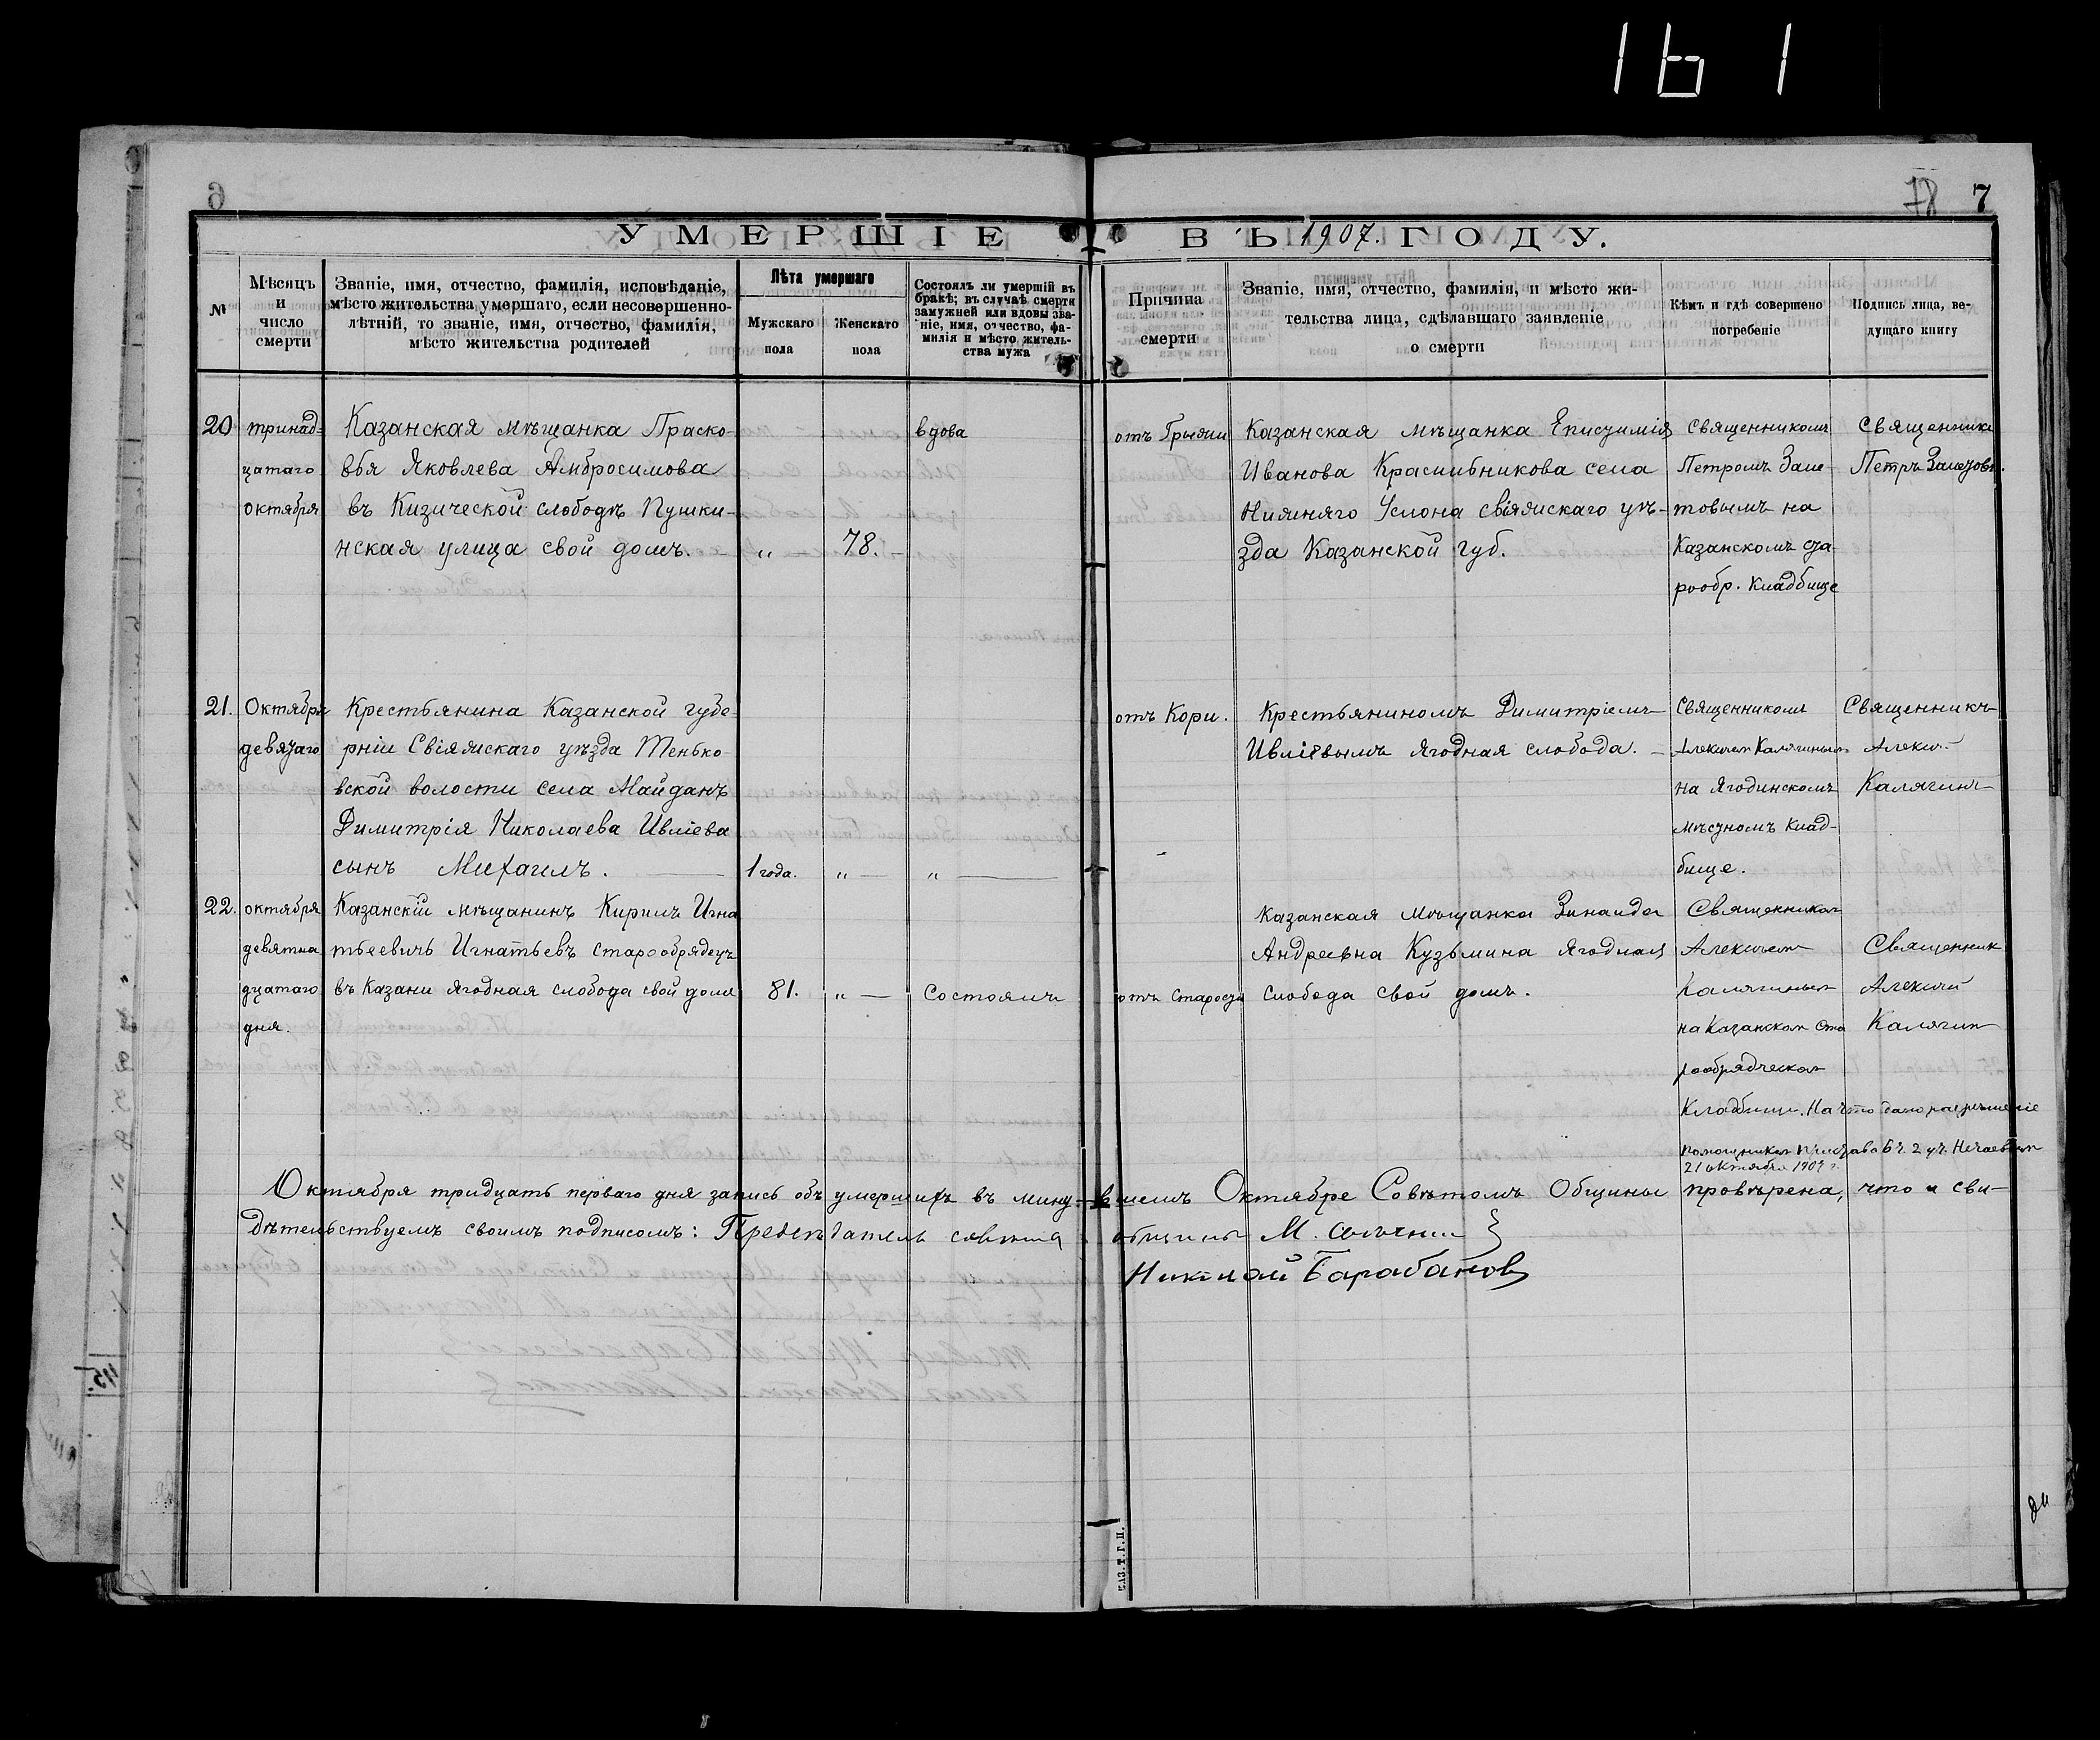 161
78 7
УМЕРШІЕ ВЪ 1907. ГОДУ.
№
Мѣсяцъ
и
число
смерти
Званіе, имя, отчество, фамилія, исповѣданіе,
мѣсто жительства умершаго, если несовершенно-
лѣтній, то званіе, имя, отчество, фамилія,
мѣсто жительства родителей
Лѣта умершаго
Мужскаго
пола
Женскаго
пола
Состоялъ ли умершій въ
бракѣ; въ случаѣ смерти
замужней или вдовы зва-
ніе, имя, отчество, фа-
милія и мѣсто житель-
ства мужа
Причина
смерти
Званіе, имя, отчество, фамилія, и мѣсто жи-
тельства лица, сдѣлавшаго заявленіе
о смерти
Кѣмъ и гдѣ совершено
погребеніе
Подпись лица, ве-
дущаго книгу
20
тринад-
цатаго
октября
Казанская мѣщанка Праско-
вья Яковлева Амбросимова
въ Кизической слободѣ Пушки-
нская улица свой домъ.
„
78.
вдова
отъ Грыжи
Казанская мѣщанка
Иванова Красильникова села
Нижняго Услона Свіяжскаго уѣ-
зда Казанской губ.
Священникомъ
Петромъ Зале-
товымъ на
Казанскомъ ста-
рообр. кладбище
Священникъ
Петръ Залетовъ.
21.
Октября
девятаго
Крестьянина Казанской губе-
рніи Свіяжскаго уѣзда Тенько-
вской волости села Майданъ
Димитрія Николаева Ивлiева
сынъ Михаилъ.
1 года.
„ —
„
отъ Кори.
Крестьяниномъ Димитріемъ
Ивлiевымъ Ягодная слобода.
Священникомъ
Алексѣем Калягинымъ
на Ягодинскомъ
мѣстномъ клад-
бище.
Священникъ
Алексій
Калягинъ
22.
октября
девятна
дцатаго
дня.
Казанскій мѣщанинъ Кирилъ Игна
тьевичъ Игнатьевъ старообрядецъ
въ Казани Ягодная слобода свой домъ
81.
„ —
Состоялъ
отъ старости
Казанская мѣщанка Зинаида
Андреевна Кузьмина Ягодная
слобода свой домъ.
Священником
Алексѣем
Калягиным
на Казанском ста
рообрядческом
Кладбищи. На что дано разрешеніе
помощником пристава 6 ч. 2 уч. Нечаевым
21 октября 1907 г.
Священник
Алексій
Калягин
Октября тридцать перваго дня запись объ умершихъ въ мину-
вшемъ Октябре Совѣтомъ Общины провѣрена, что и сви-
дѣтельствуемъ своимъ подписомъ: Предсѣдатель совѣта
общины М.
Николай Барабановъ
КАЗ. Т. Г. П.